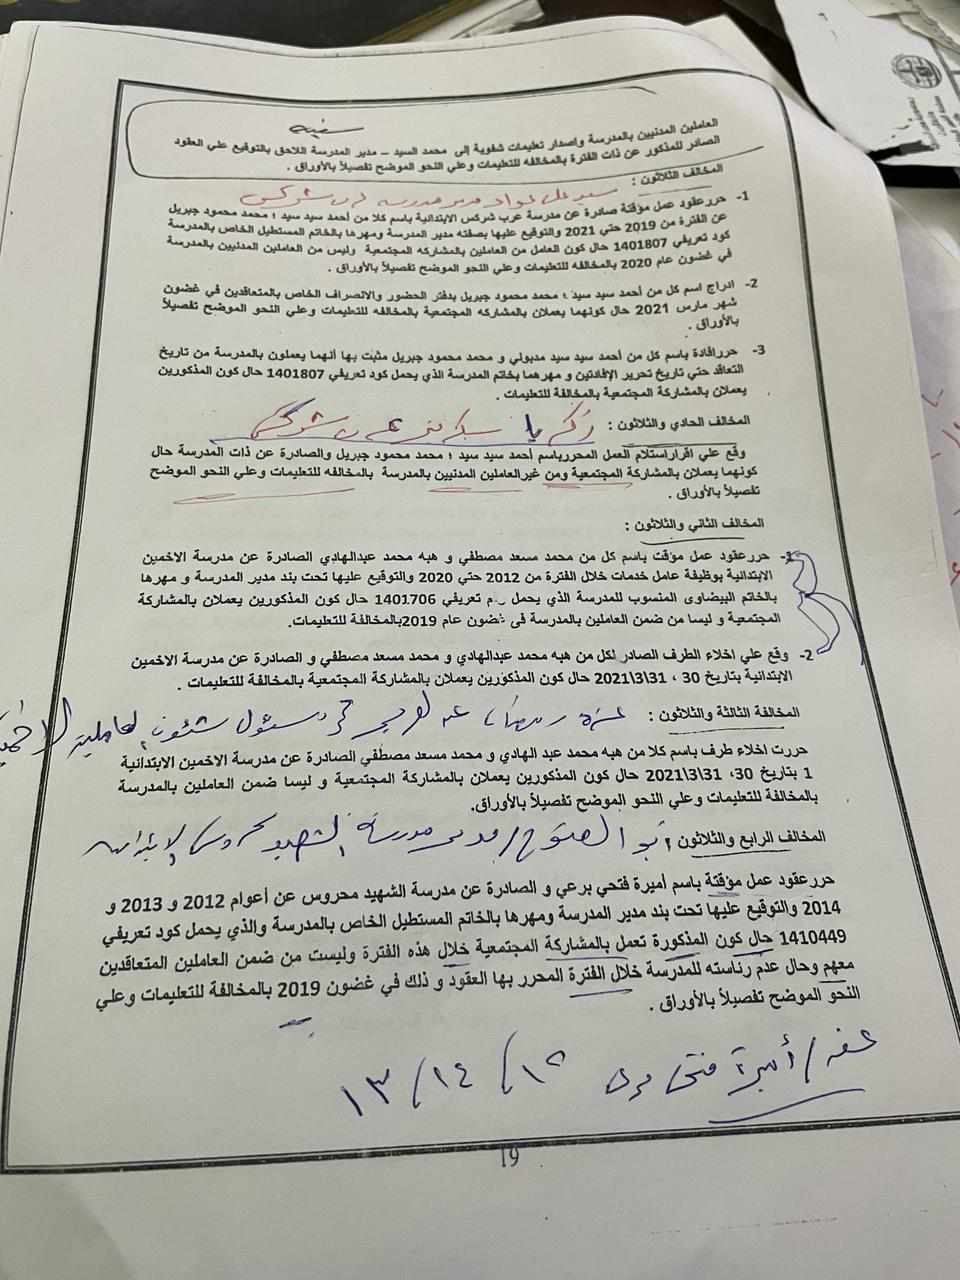 العاملين المدنيين بالمدرسة واصدار تعليمات شفوية إلى محمد السيد – مدير المدرسة اللاحق بالتوقيع علي العقود
الصادر للمذكور عن ذات الفترة بالمخالفه للتعليمات وعلي النحو الموضح تفصيلاً بالأوراق .
المخالف الثلاثون :
1- حررعقود عمل مؤقتة صادرة عن مدرسة عرب شركس الابتدائية باسم كلا من أحمد سيد سيد ؛ محمد محمود جبريل
عن الفترة من 2019 حتى 2021 والتوقيع عليها بصفته مدير المدرسة ومهرها بالخاتم المستطيل الخاص بالمدرسة
كود تعريفي 1401807 حال كون العامل من العاملين بالمشاركه المجتمعية وليس من العاملين المدنيين بالمدرسة
في غضون عام 2020 بالمخالفه للتعليمات وعلي النحو الموضح تفصيلاً بالأوراق .
2- ادراج اسم كل من أحمد سيد سيد ؛ محمد محمود جبريل بدفتر الحضور والانصراف الخاص بالمتعاقدين في غضون
شهر مارس 2021 حال كونهما يعملان بالمشاركه المجتمعية بالمخالفه للتعليمات وعلي النحو الموضح تفصيلاً
بالأوراق .
3- حررافادة باسم كل من أحمد سيد سيد مدبولي و محمد محمود جبريل مثبت بها أنهما يعملون بالمدرسة من تاريخ
التعاقد حتي تاريخ تحرير الإفادتين و مهرهما بخاتم المدرسة الذي يحمل كود تعريفي 1401807 حال كون المذكورين
يعملان بالمشاركة المجتمعية بالمخالفة للتعليمات .
المخالف الحادي والثلاثون :
وقع علي اقراراستلام العمل المحررباسم أحمد سيد سيد ؛ محمد محمود جبريل والصادرة عن ذات المدرسة حال
كونهما يعملان بالمشاركة المجتمعية ومن غيرالعاملين المدنيين بالمدرسة بالمخالفه للتعليمات وعلي النحو الموضح
تفصيلاً بالأوراق .
المخالف الثاني والثلاثون :
حررعقود عمل مؤقت باسم كل من محمد مسعد مصطفي و هبه محمد عبدالهادي الصادرة عن مدرسة الاخمين
الابتدائية بوظيفة عامل خدمات خلال الفترة من 2012 حتي 2020 والتوقيع عليها تحت بند مدير المدرسة و مهرها
بالخاتم البيضاوى المنسوب للمدرسة الذي يحمل تعريفي 1401706 حال كون المذكورين يعملان بالمشاركة
المجتمعية و ليسا من ضمن العاملين بالمدرسة فى غضون عام 2019بالمخالفة للتعليمات.
2- وقع علي اخلاء الطرف الصادر لكل من هبه محمد عبدالهادي و محمد مسعد مصطفي و الصادرة عن مدرسة الاخمين
الابتدائية بتاريخ 30 ، 31\3\2021 حال كون المذكورين يعملان بالمشاركة المجتمعية بالمخالفة للتعليمات .
المخالفة الثالثة والثلاثون :
حررت اخلاء طرف باسم كلا من هبه محمد عبد الهادي و محمد مسعد مصطفي الصادرة عن مدرسة الاخمين الابتدائية
1 بتاريخ 30، 31\3\2021 حال كون المذكورين يعملان بالمشاركة المجتمعية و ليسا ضمن العاملين بالمدرسة
بالمخالفة للتعليمات وعلي النحو الموضح تفصيلاً بالأوراق.
المخالف الرابع والثلاثون : أبو الفتوح / مدير مدرسة الشهيد محروس الابتدائية
حررعقود عمل مؤقتة باسم أميرة فتحي برعي و الصادرة عن مدرسة الشهيد محروس عن أعوام 2012 و 2013 و
2014 والتوقيع عليها تحت بند مدير المدرسة ومهرها بالخاتم المستطيل الخاص بالمدرسة والذي يحمل كود تعريفي
1410449 حال كون المذكورة تعمل بالمشاركة المجتمعية خلال هذه الفترة وليست من ضمن العاملين المتعاقدين
معهم وحال عدم رئاسته للمدرسة خلال الفترة المحرر بها العقود و ذلك في غضون 2019 بالمخالفة للتعليمات وعلي
النحو الموضح تفصيلاً بالأوراق .
أميرة فتحى ١٢ / ١٤ / ١٣
19